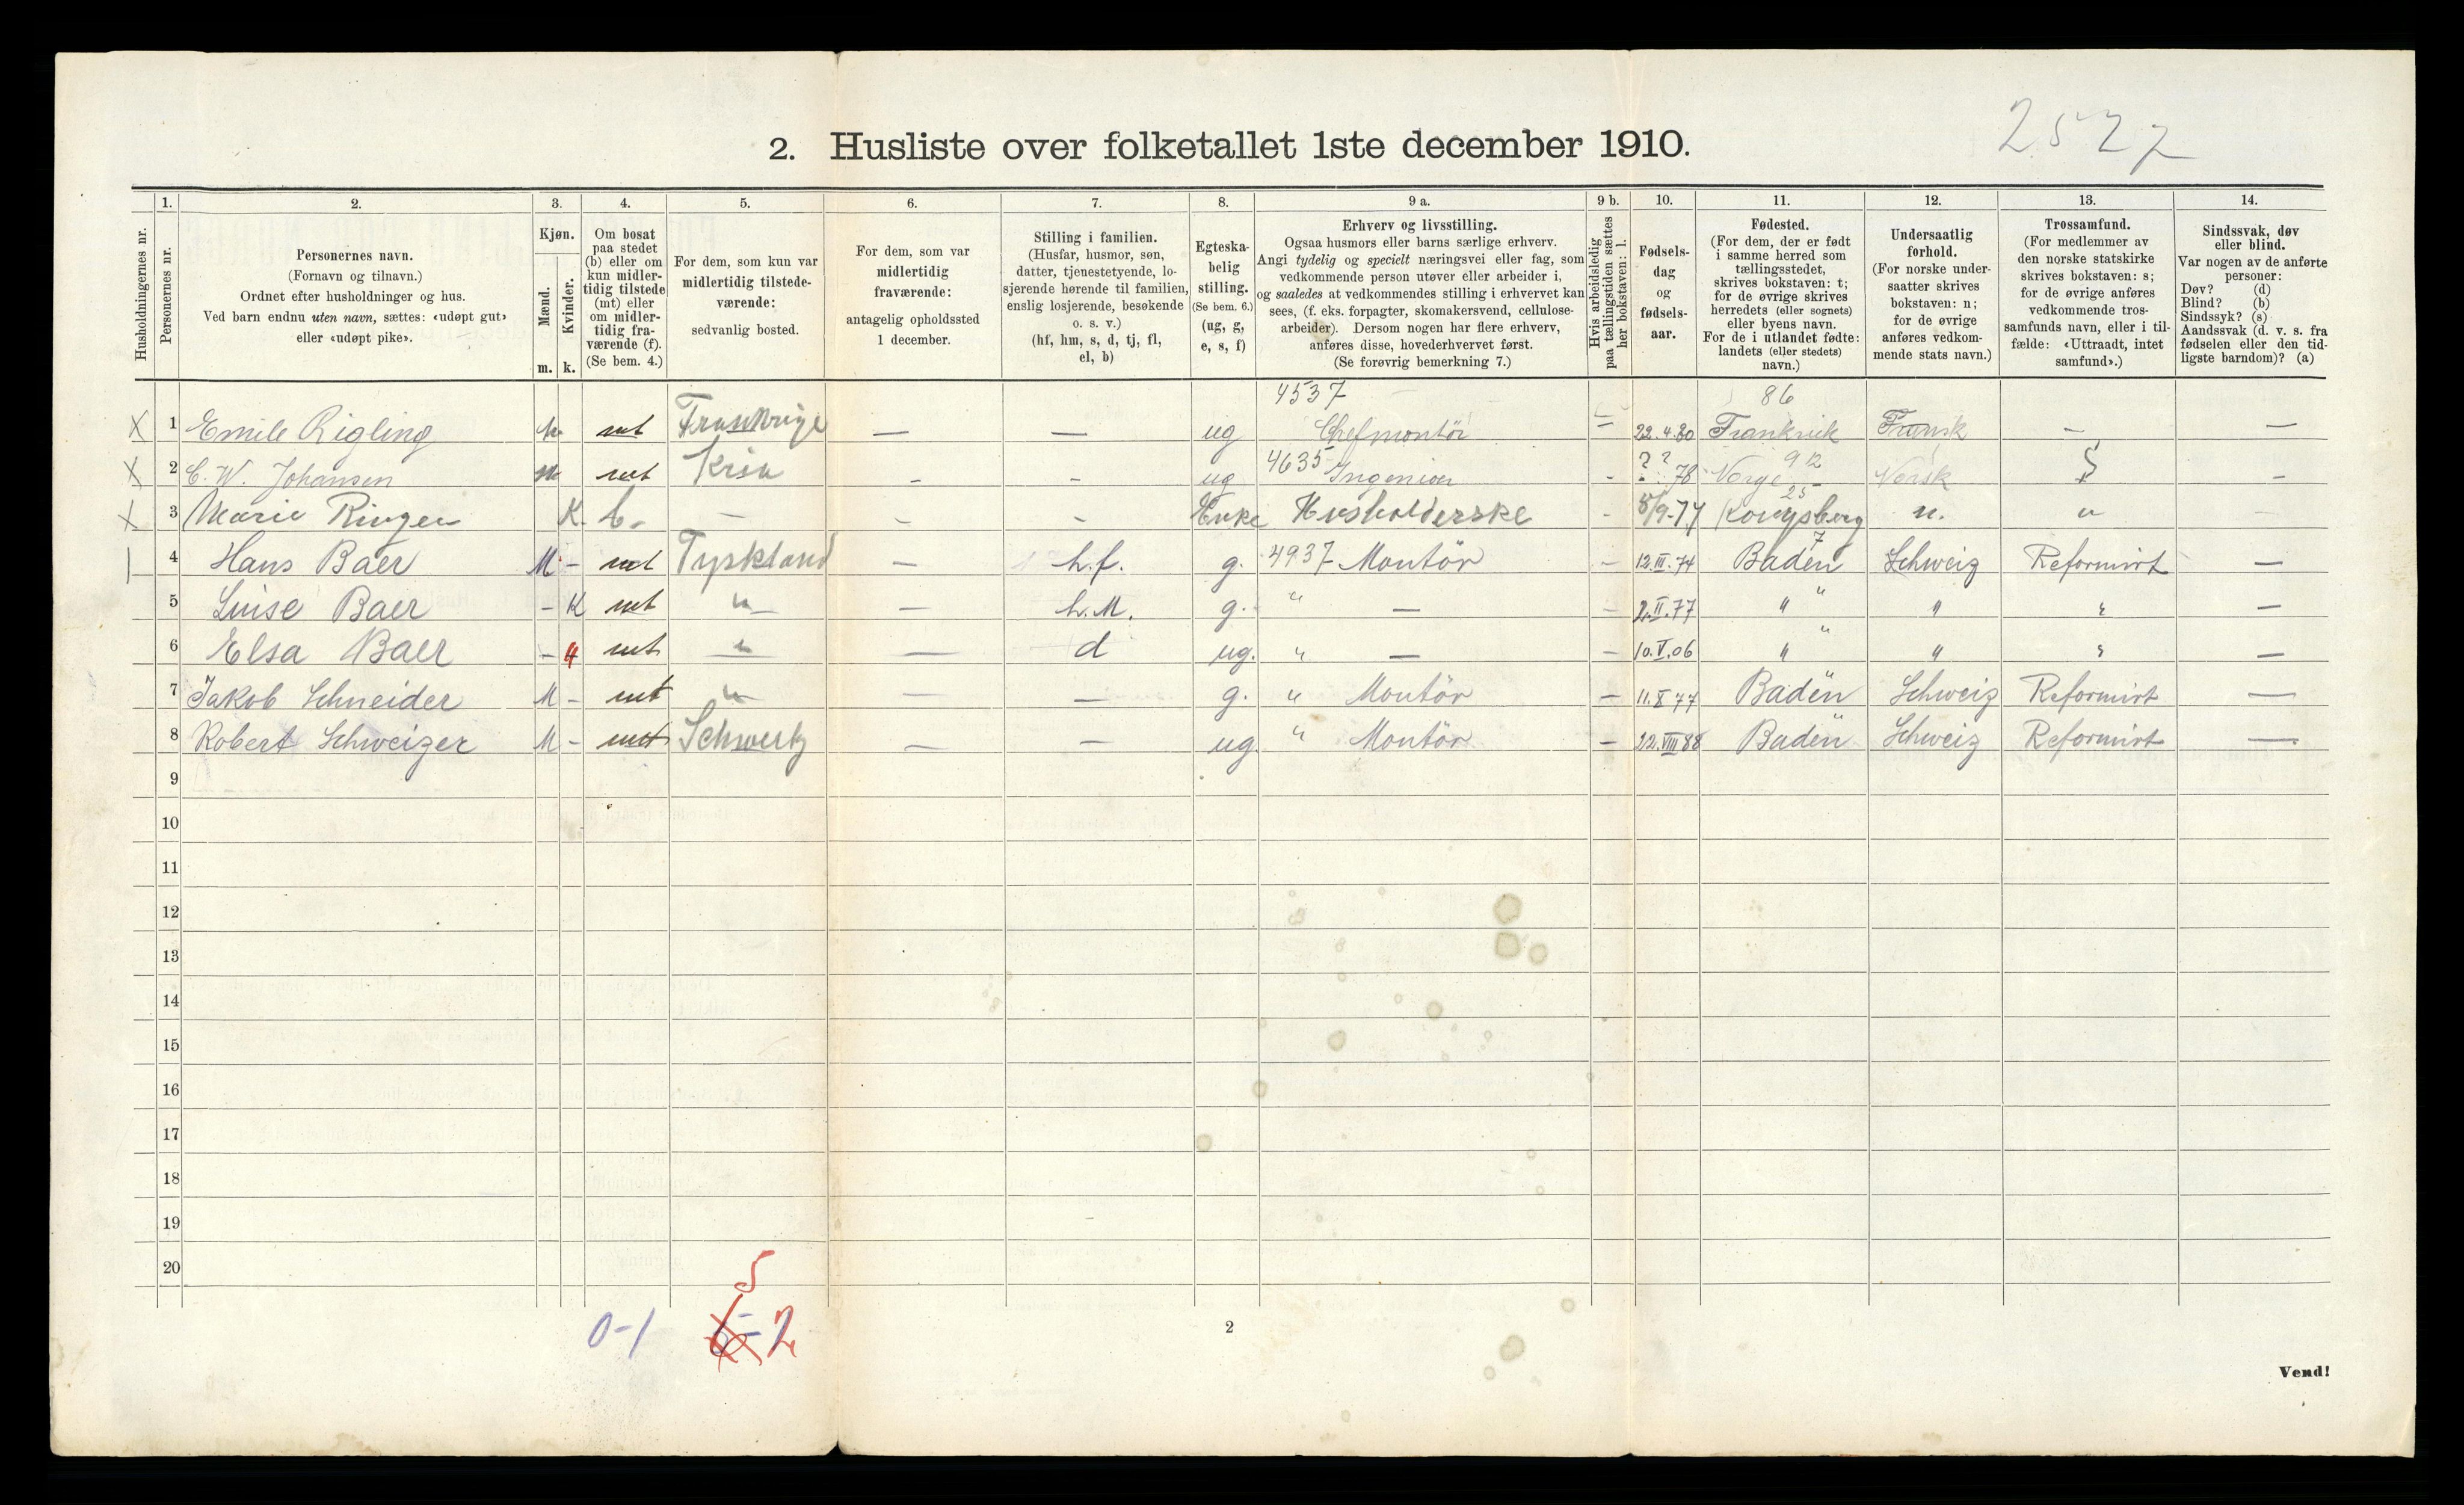 2522
2. Husliste over folketallet 1ste december 1910.
Husholdningernes nr.
1. Personernes nr.
2. Personernes navn.
(Fornavn og tilnavn.)
Ordnet efter husholdninger og hus.
Ved barn endnu uten navn, sættes: «udøpt gut»
eller «udøpt pike».
3. Kjøn.
Mænd. Kvinder.
m. k.
4. Om bosat
paa stedet
(b) eller om
kun midler-
tidig tilstede
(mt) eller
om midler-
tidig fra-
værende (f).
(Se bem. 4.)
5. For dem, som kun var
midlertidig tilstede-
værende:
sedvanlig bosted.
6. For dem, som var
midlertidig
fraværende:
antagelig opholdssted
1 december.
7. Stilling i familien.
(Husfar, husmor, søn,
datter, tjenestetyende, lo-
sjerende hørende til familien,
enslig losjerende, besøkende
o. s. v.)
(hf, hm, s, d, tj, fl,
el, b)
8. Egteska-
belig
stilling.
(Se bem. 6.)
(ug, g,
e, s, f)
9 a. Erhverv og livsstilling.
Ogsaa husmors eller barns særlige erhverv.
Angi tydelig og specielt næringsvei eller fag, som
vedkommende person utøver eller arbeider i,
og saaledes at vedkommendes stilling i erhvervet kan
sees, (f. eks. forpagter, skomakersvend, cellulose-
arbeider). Dersom nogen har flere erhverv,
anføres disse, hovederhvervet først.
(Se forøvrig bemerkning 7.)
9 b. Hvis arbeidsledig
paa tællingstiden sættes
her bokstaven: l.
10. Fødsels-
dag
og
fødsels-
aar.
11. Fødested.
(For dem, der er født
i samme herred som
tællingsstedet,
skrives bokstaven: t;
for de øvrige skrives
herredets (eller sognets)
eller byens navn.
For de i utlandet fødte:
landets (eller stedets)
navn.)
12. Undersaatlig
forhold.
(For norske under-
saatter skrives
bokstaven: n;
for de øvrige
anføres vedkom-
mende stats navn.)
13. Trossamfund.
(For medlemmer av
den norske statskirke
skrives bokstaven: s;
for de øvrige anføres
vedkommende tros-
samfunds navn, eller i til-
fælde: «Uttraadt, intet
samfund».)
14. Sindssvak, døv
eller blind.
Var nogen av de anførte
personer:
Døv? (d)
Blind? (b)
Sindssyk? (s)
Aandssvak (d. v. s. fra
fødselen eller den tid-
ligste barndom)? (a)
4537 86
X 1 Emile Rigling m mt Frankrige — — ug Chefmontör 22.4.80 Frankrik Fransk — —
X 2 C. W. Johansen m mt Kria - - ug 4635 Ingeniør - ? ? 78 Norge 912 Norsk -
X 3 Marie Ringen K. b. - - - Enke Husholderske - 8/9-77 Kongsberg 25 n. " -
4 Hans Baer M - mt Tyskland — h.f. g. 4937 Montör - 12.III.74 Baden 7 Schweiz Reformirt —
5 Luise Baer - K mt " — h.M. g. " — - 2.II.77 " " " —
6 Elsa Baer - 4 mt " — d ug. " — - 10.V.06 " " " —
7 Jakob Schneider M - mt " — — g. " Montör - 11.X 77 Baden Schweiz Reformirt —
8 Robert Schweizer M - mt Schweitz — — ug " Montör - 22.VIII 88 Baden Schweiz Reformirt —
9
10
11
12
13
14
15
16
17
18
19
20
5
0-1 6-2
2
Vend!